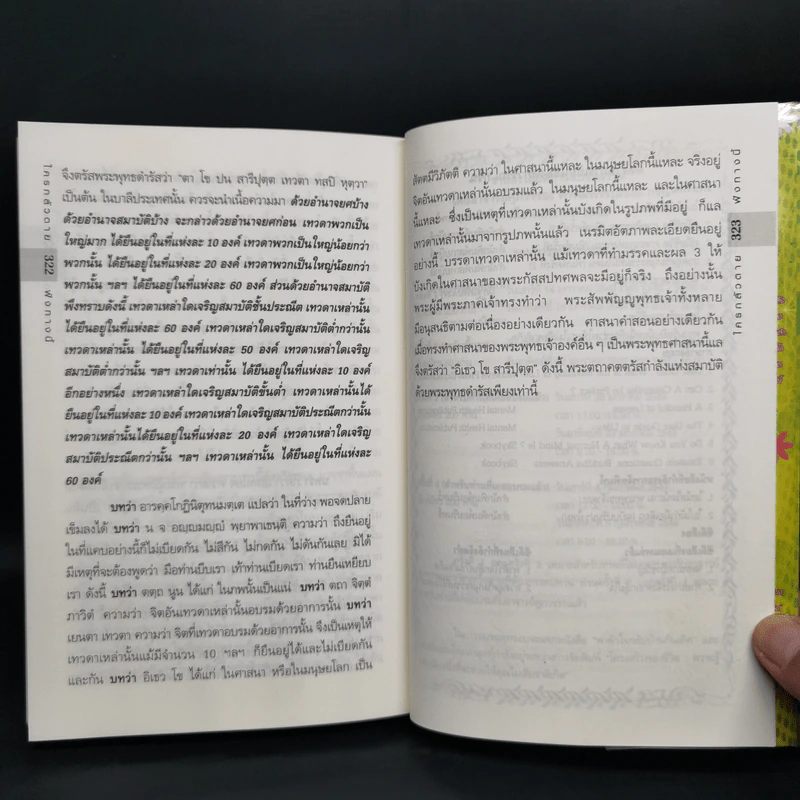 จึงตรัสพระพุทธดำรัสว่า "ตา โข ปน สารีปุตฺต เทวตา ทสปิ หุตฺวา"
เป็นต้น ในบาลีประเทศนั้น ควรจะนำเนื้อความมา ด้วยอำนาจยศบ้าง
ด้วยอำนาจสมาบัติบ้าง จะกล่าวด้วยอำนาจยศก่อน เทวดาพวกเป็น
ใหญ่มาก ได้ยืนอยู่ในที่แห่งละ 10 องค์ เทวดาพวกเป็นใหญ่น้อยกว่า
พวกนั้น ได้ยืนอยู่ในที่แห่งละ 20 องค์ เทวดาพวกเป็นใหญ่น้อยกว่า
พวกนั้น ฯลฯ ได้ยืนอยู่ในที่แห่งละ 60 องค์ ส่วนด้วยอำนาจสมาบัติ
พึงทราบดังนี้ เทวดาเหล่าใดเจริญสมาบัติชั้นประณีต เทวดาเหล่านั้น
ได้ยืนอยู่ในที่แห่งละ 60 องค์ เทวดาเหล่าใดเจริญสมาบัติต่ำกว่านั้น
เทวดาเหล่านั้น ได้ยืนอยู่ในที่แห่งละ 50 องค์ เทวดาเหล่าใดเจริญ
สมาบัติต่ำกว่านั้น ฯลฯ เทวดาเท่านั้น ได้ยืนอยู่ในที่แห่งละ 10 องค์
อีกอย่างหนึ่ง เทวดาเหล่าใดเจริญสมาบัติขั้นต่ำ เทวดาเหล่านั้นได้
ยืนอยู่ในที่แห่งละ 10 องค์ เทวดาเหล่าใดเจริญสมาบัติประณีตกว่านั้น
เทวดาเหล่านั้นได้ยืนอยู่ในที่แห่งละ 20 องค์ เทวดาเหล่าใดเจริญ
สมาบัติประณีตกว่านั้น ฯลฯ เทวดาเหล่านั้น ได้ยืนอยู่ในที่แห่งละ
60 องค์
บทว่า อารคฺคโกฏินิตุทนมตฺเต แปลว่า ในที่ว่าง พอจดปลาย
เข็มลงได้ บทว่า น จ อญฺญมญฺญํ พฺยาพาเธนฺติ ความว่า ถึงยืนอยู่
ในที่แคบอย่างนี้ก็ไม่เบียดกัน ไม่สีกัน ไม่กดกัน ไม่ดันกันเลย มิได้
มีเหตุที่จะต้องพูดว่า มือท่านบีบเรา เท้าท่านเบียดเรา ท่านยืนเหยียบ
เรา ดังนี้ บทว่า ตตฺถ นูน ได้แก่ ในภพนั้นเป็นแน่ บทว่า ตถา จิตฺตํ
ภาวิตํ ความว่า จิตอันเทวดาเหล่านั้นอบรมด้วยอาการนั้น บทว่า
เยนตา เทวตา ความว่า จิตที่เทวดาอบรมด้วยอาการนั้น จึงเป็นเหตุให้
เทวดาเหล่านั้นแม้มีจำนวน 10 ฯลฯ ก็ยืนอยู่ได้และไม่เบียดกัน
และกัน บทว่า อิเธว โข ได้แก่ ในศาสนา หรือในมนุษยโลก เป็น
ใครกลัวตาย 322 ฟังทางนี้
สัตตมีวิภัตติ ความว่า ในศาสนานี้แหละ ในมนุษยโลกนี้แหละ จริงอยู่
จิตอันเทวดาเหล่านั้นอบรมแล้ว ในมนุษยโลกนี้แหละ และในศาสนา
นี้แหละ ซึ่งเป็นเหตุที่เทวดาเหล่านั้นบังเกิดในรูปภพที่มีอยู่ ก็แล
เทวดาเหล่านั้นมาจากรูปภพนั้นแล้ว เนรมิตอัตภาพละเอียดยืนอยู่
อย่างนี้ บรรดาเทวดาเหล่านั้น แม้เทวดาที่ทำมรรคและผล 3 ให้
บังเกิดในศาสนาของพระกัสสปทศพลจะมีอยู่ก็จริง ถึงอย่างนั้น
พระผู้มีพระภาคเจ้าทรงทำว่า พระสัพพัญญูพุทธเจ้าทั้งหลาย
มีอนุสนธิตามต่อเนื่องอย่างเดียวกัน ศาสนาคำสอนอย่างเดียวกัน
เมื่อทรงทำศาสนาของพระพุทธเจ้าองค์อื่น ๆ เป็นพระพุทธศาสนานี้แล
จึงตรัสว่า "อิเธว โข สารีปุตฺต" ดังนี้ พระตถาคตตรัสกำลังแห่งสมาบัติ
ด้วยพระพุทธดำรัสเพียงเท่านี้
ใครกลัวตาย 323 ฟังทางนี้